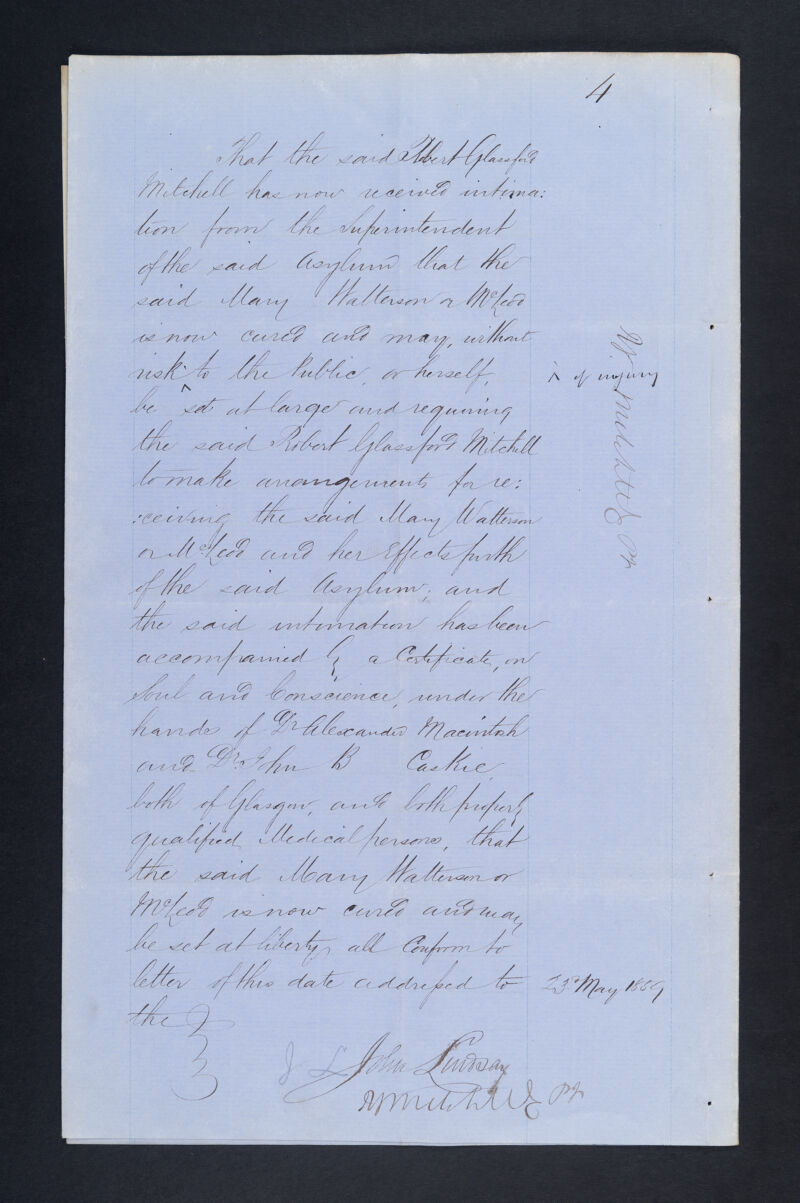 4
That the said Robert Glassford
Mitchell has now received intima:
tion from the Superintendent
of the said Asylum that the
said Mary Watterson or McLeod
is now cured and may, without
risk ^ to the Public, or herself,
^ of injury
be set at large and requiring
the said Robert Glassford Mitchell
to make arrangements for re:
:ceiving the said Mary Watterson
or McLeod and her Effects furth
of the said Asylum; and
the said intimation has been
accompanied by a Certificate, on
Soul and Conscience, under the
hands of Dr Alexander Macintosh
and Dr John B Caskie,
both of Glasgow, and both properly
qualified Medical persons, that
the said Mary Watterson or
McLeod is now cured and may
be set at liberty, all Conform to
letter of this date addressed to
23d May 1859
the
John Lindsay